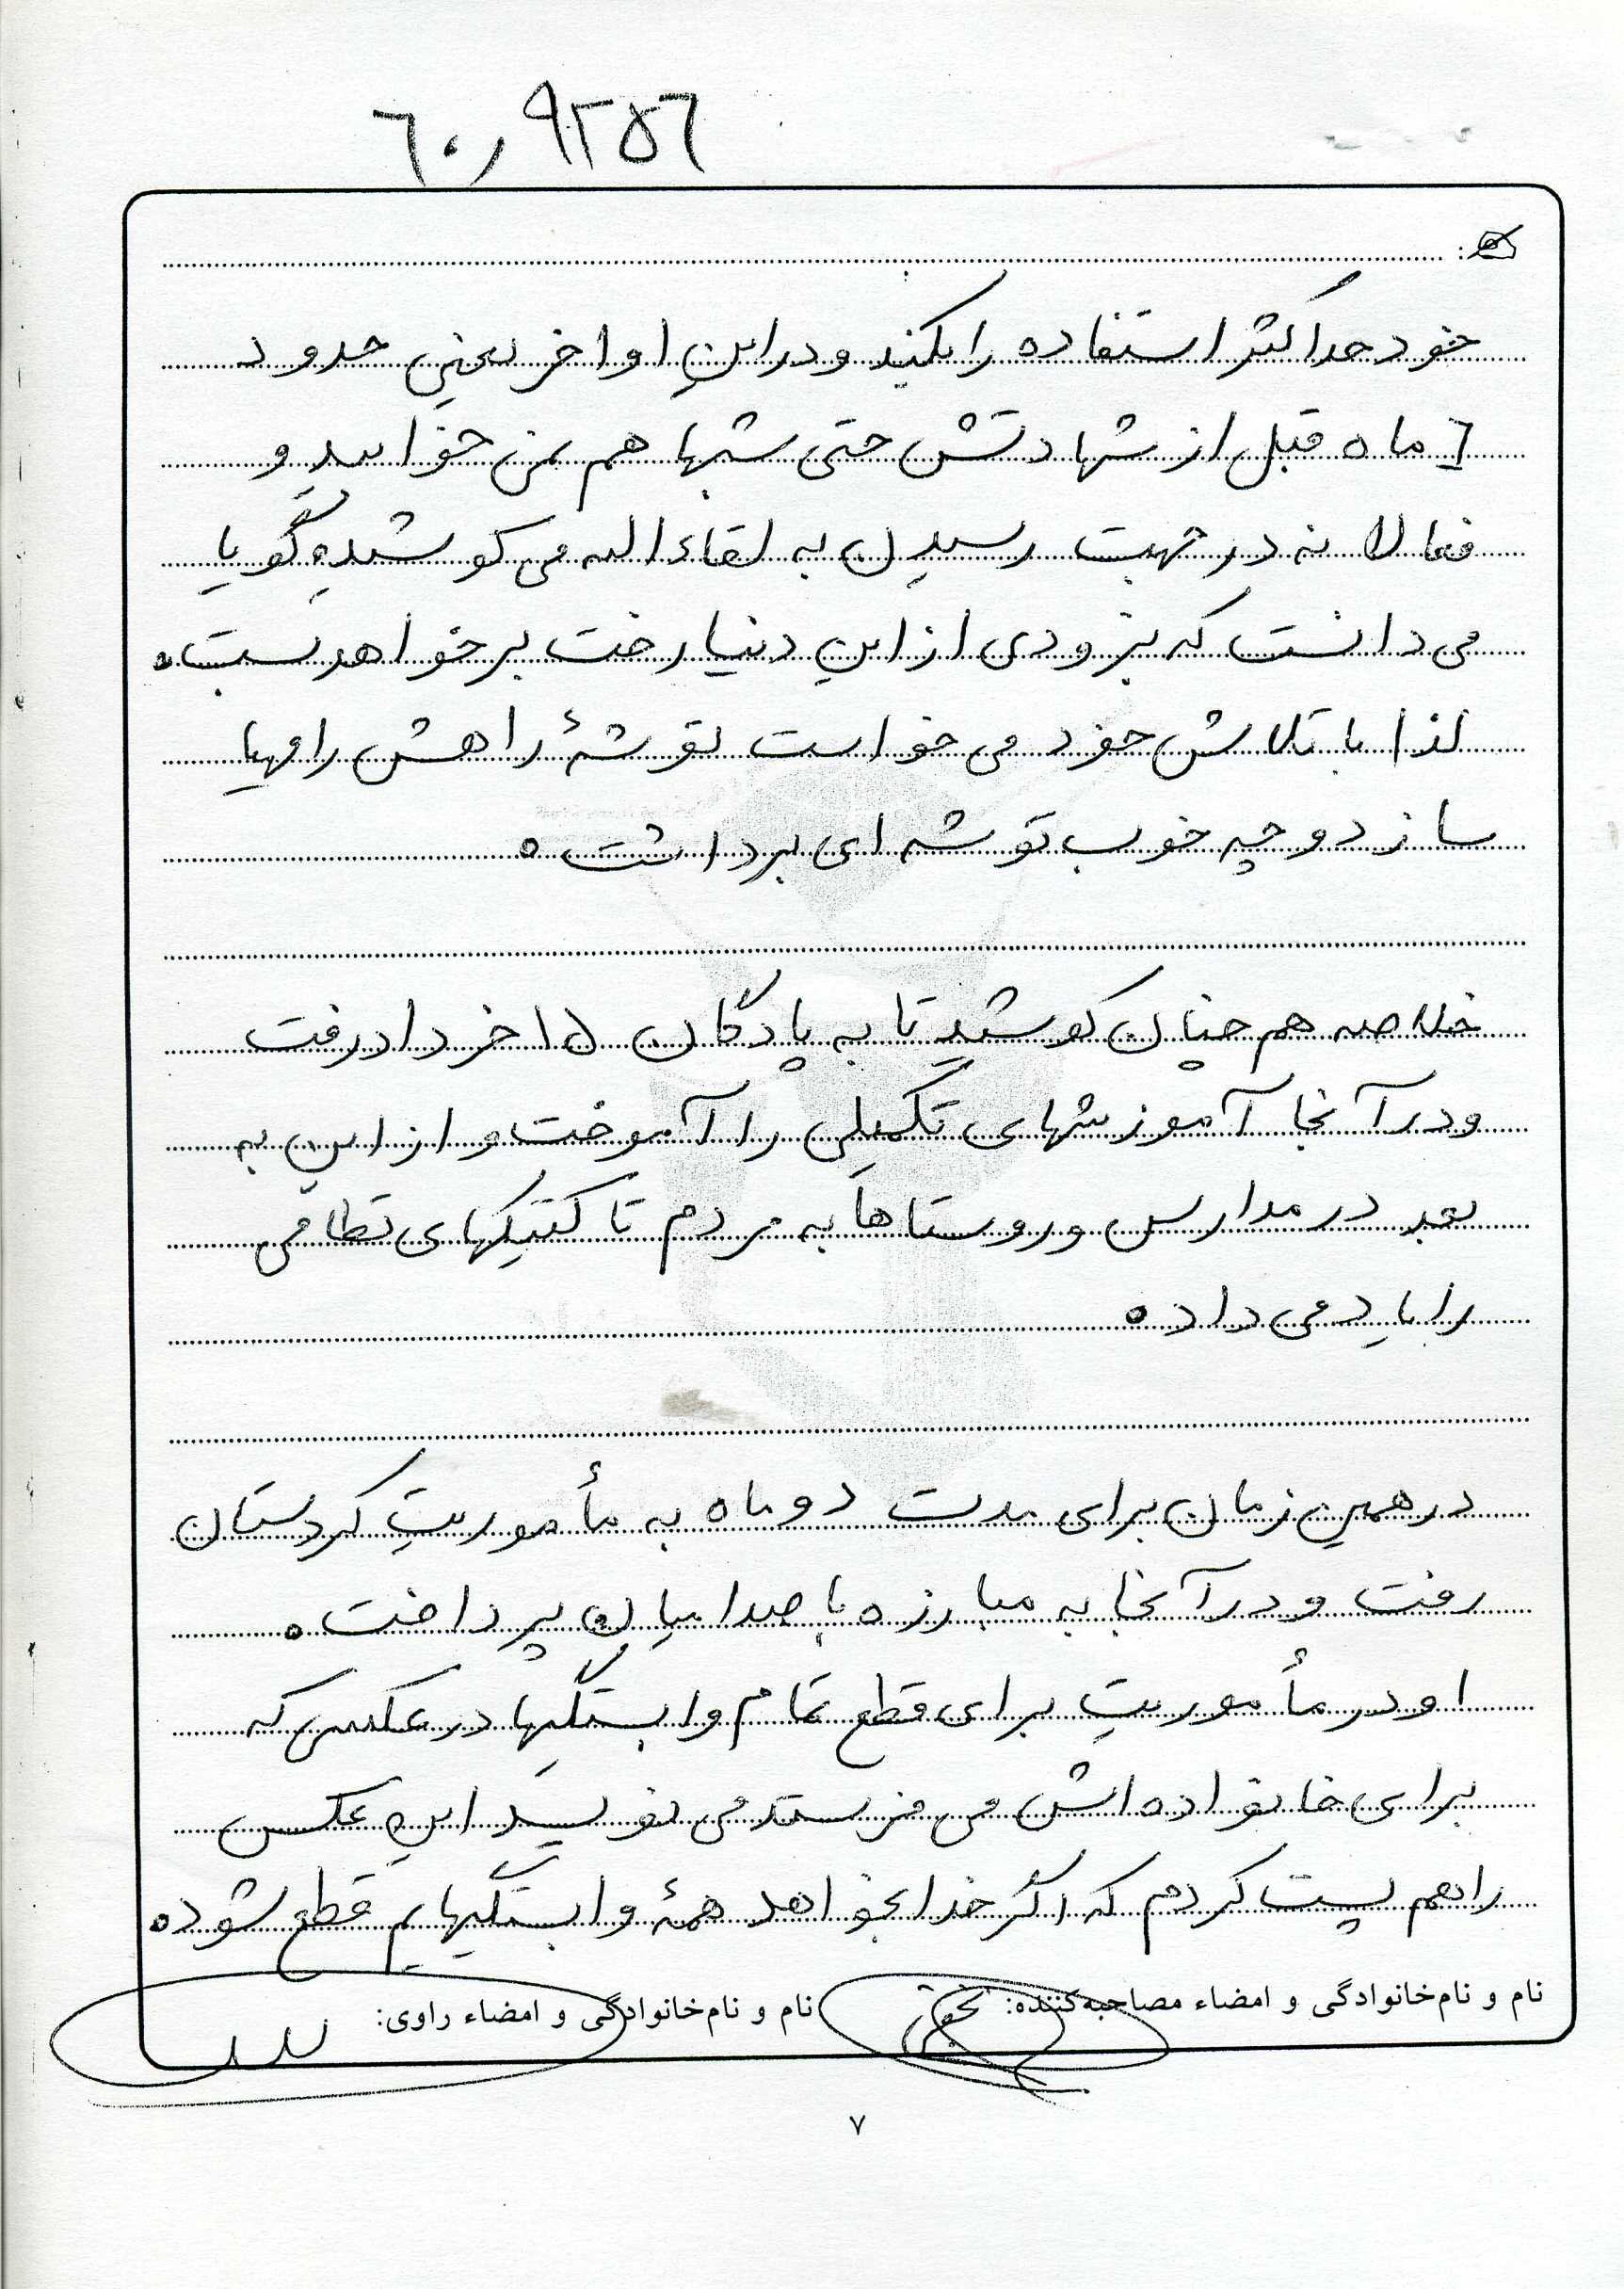 ۶۰٫۹۲۵۶
خود حداکثر استفاده را بکند و در این اواخر یعنی حدود
۶ ماه قبل از شهادتش حتی شبها هم نمی خوابید و
فعالانه در جهت رسیدن به لقاء الله می کوشید گویا
می دانست که بزودی از این دنیا رخت بر خواهد بست.
لذا با تلاش خود می خواست توشهٔ راهش را مهیا
سازد و چه خوب توشه ای برداشت.
خلاصه هم چنان کوشید تا به پادگان ۱۵ خرداد رفت
و در آنجا آموزشهای تکمیلی را آموخت و از این به
بعد در مدارس و روستاها به مردم تاکتیکهای نظامی
را یاد می داد.
در همین زمان برای مدت دو ماه به مأموریت کردستان
رفت و در آنجا به مبارزه با صدامیان پرداخت.
او در مأموریت برای قطع تمام وابستگیها در عکسی که
برای خانواده اش می فرستد می نویسد این عکس
را هم پست کردم که اگر خدا بخواهد همهٔ وابستگیهایم قطع شود.
نام و نام‌خانوادگی و امضاء مصاحبه‌کننده:
نام و نام‌خانوادگی و امضاء راوی:
۷